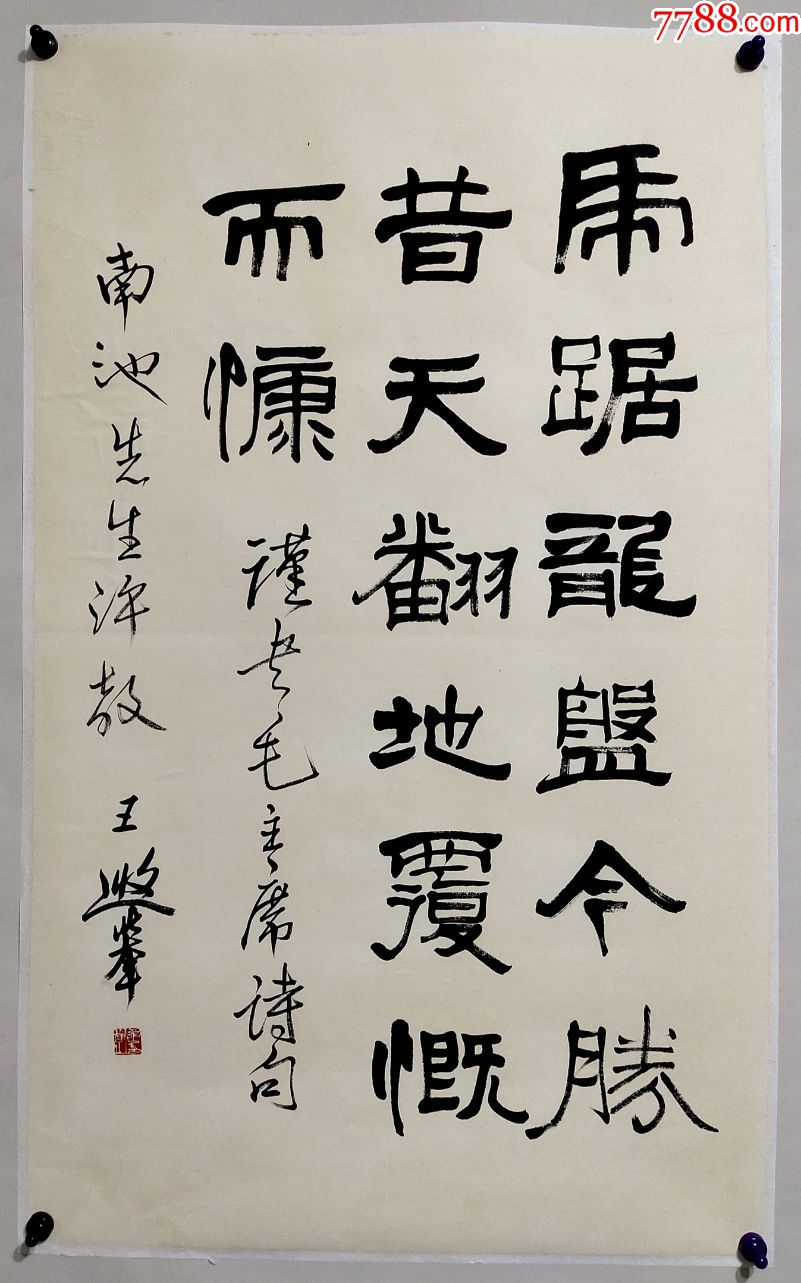 7788.com
虎踞龍盤今勝
昔天翻地覆慨
而慷
謹書毛主席詩句
南池先生評教
王遐舉